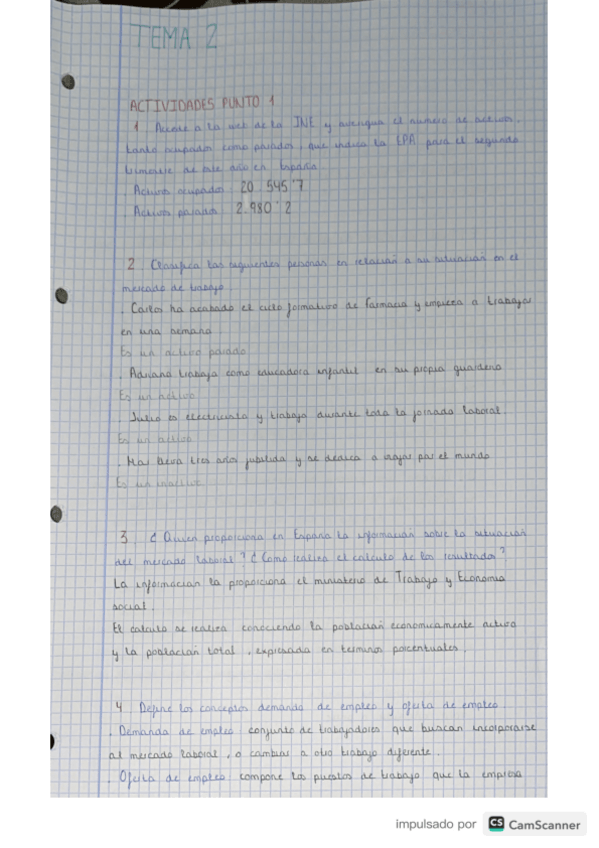 TEMA 2
ACTIVIDADES PUNTO 1
1 Accede a la web de la INE y averigua el numero de activos,
tanto ocupados como parados, que indica la EPA para el segundo
trimestre de este año en España
Activos ocupados 20 545'7
Activos parados 2.980'2
2 Clasifica las siguientes personas en relación a su situación en el
mercado de trabajo
. Carlos ha acabado el ciclo formativo de farmacia y empieza a trabajar
en una semana
Es un activo parado
. Adriana trabaja como educadora infantil en su propia guarderia
Es un activo
. Julio es electricista y trabaja durante toda la jornada laboral.
Es un activo
. Mar lleva tres años jubilada y se dedica a viajar por el mundo
Es un inactivo
3 ¿Quien proporciona en España la información sobre la situación
del mercado laboral? ¿Como realiza el calculo de los resultados?
La información la proporciona el ministerio de Trabajo y Economia
social.
El calculo se realiza conociendo la población economicamente activa
y la población total, expresada en terminos porcentuales.
4 Define los conceptos demanda de empleo y oferta de empleo.
. Demanda de empleo conjunto de trabajadores que buscan incorporarse
al mercado laboral, o cambiar a otro trabajo diferente.
. Oferta de empleo compone los puestos de trabajo que la empresa
impulsado por CS CamScanner